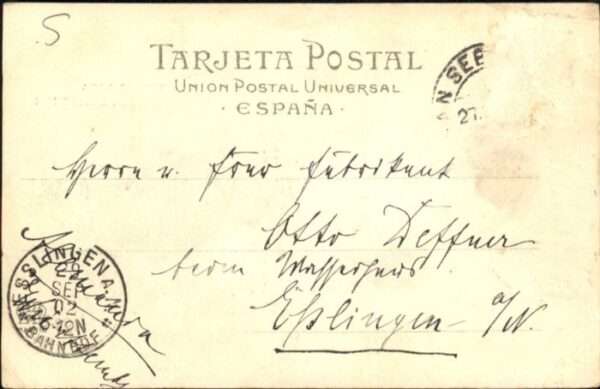 S
TARJETA POSTAL
UNION POSTAL UNIVERSAL
· ESPAÑA ·
N SEP
27.
Herrn u. Frau Fabrikant
Otto Deffner
beim Wasserhaus
Eßlingen a/N.
ESSLINGEN A. N.
29
SEP
02
6-12N
BAHNHOF